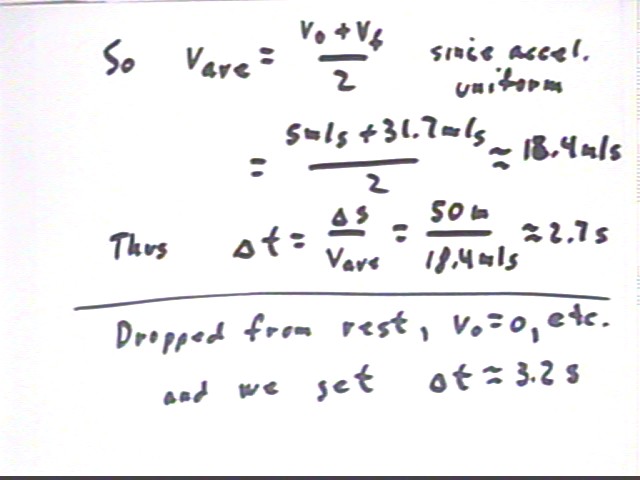 So Vave = (v0 + vf)/2 since accel. uniform
= (5m/s + 31.7m/s)/2 ≈ 18.4m/s
Thus Δt = Δs/Vave = 50m/18.4m/s ≈ 2.7s
Dropped from rest, v0=0, etc.
and we get Δt ≈ 3.2s